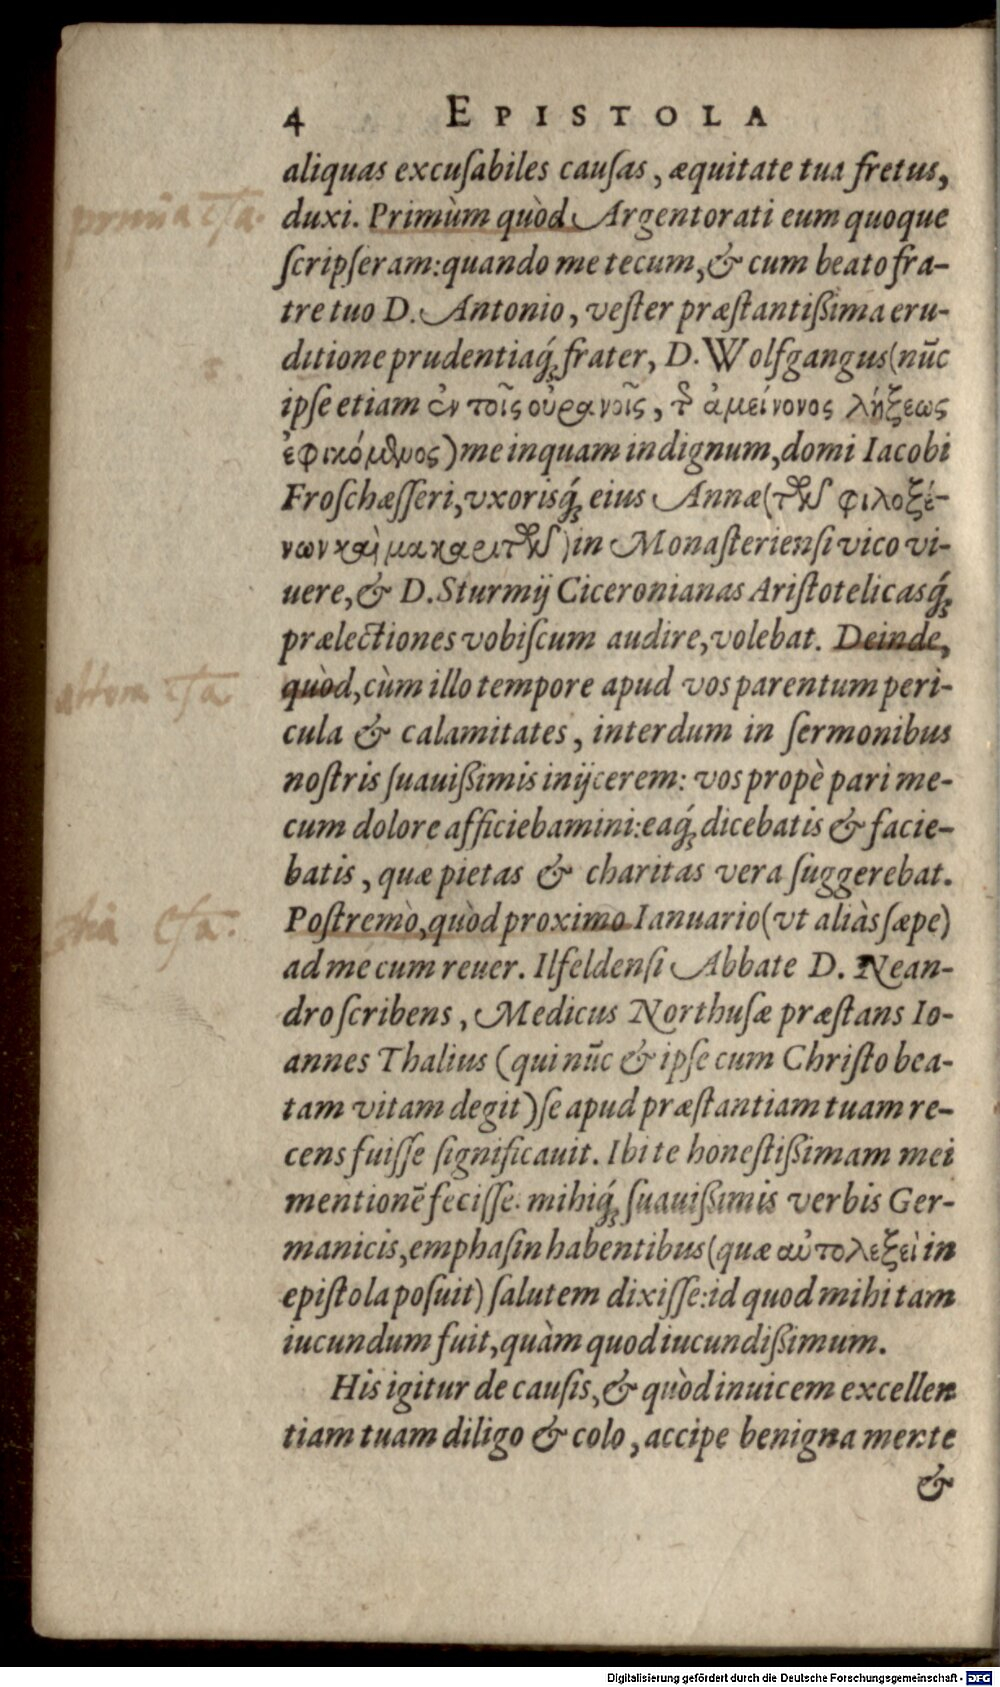 4 EPISTOLA
aliquas excuſabiles cauſas, æquitate tua fretus,
duxi. Primùm quòd Argentorati eum quoque
ſcripſeram: quando me tecum, & cum beato fra-
tre tuo D. Antonio, veſter præſtantißima eru-
ditione prudentiaq́ꝫ frater, D. Wolfgangus (nūc
ipſe etiam ἐν τοῖς οὐρανοῖς, τῆς ἀμείνονος λήξεως
ἐφικόμενος) me inquam indignum, domi Iacobi
Froſchæſſeri, vxorisq́ꝫ eius Annæ (τῶν φιλοξέ-
νων καὶ μακαριτῶν) in Monaſterienſi vico vi-
uere, & D. Sturmij Ciceronianas Ariſtotelicasq́ꝫ
prælectiones vobiſcum audire, volebat. Deinde,
quòd, cùm illo tempore apud vos parentum peri-
cula & calamitates, interdum in ſermonibus
noſtris ſuauißimis inijcerem: vos propè pari me-
cum dolore afficiebamini: eaq́ꝫ dicebatis & facie-
batis, quæ pietas & charitas vera ſuggerebat.
Poſtremò, quòd proximo Ianuario (vt aliàs ſæpe)
ad me cum reuer. Ilfeldenſi Abbate D. Nean-
dro ſcribens, Medicus Northuſæ præſtans Io-
annes Thalius (qui nūc & ipſe cum Chriſto bea-
tam vitam degit) ſe apud præſtantiam tuam re-
cens fuiſſe ſignificauit. Ibi te honeſtißimam mei
mentionē feciſſe: mihiq́ꝫ ſuauißimis verbis Ger-
manicis, emphaſin habentibus (quæ αὐτολεξεὶ in
epiſtola poſuit) ſalutem dixiſſe: id quod mihi tam
iucundum fuit, quàm quod iucundißimum.
His igitur de cauſis, & quòd inuicem excellen
tiam tuam diligo & colo, accipe benigna mente
&
Digitalisierung gefördert durch die Deutsche Forschungsgemeinschaft - DFG